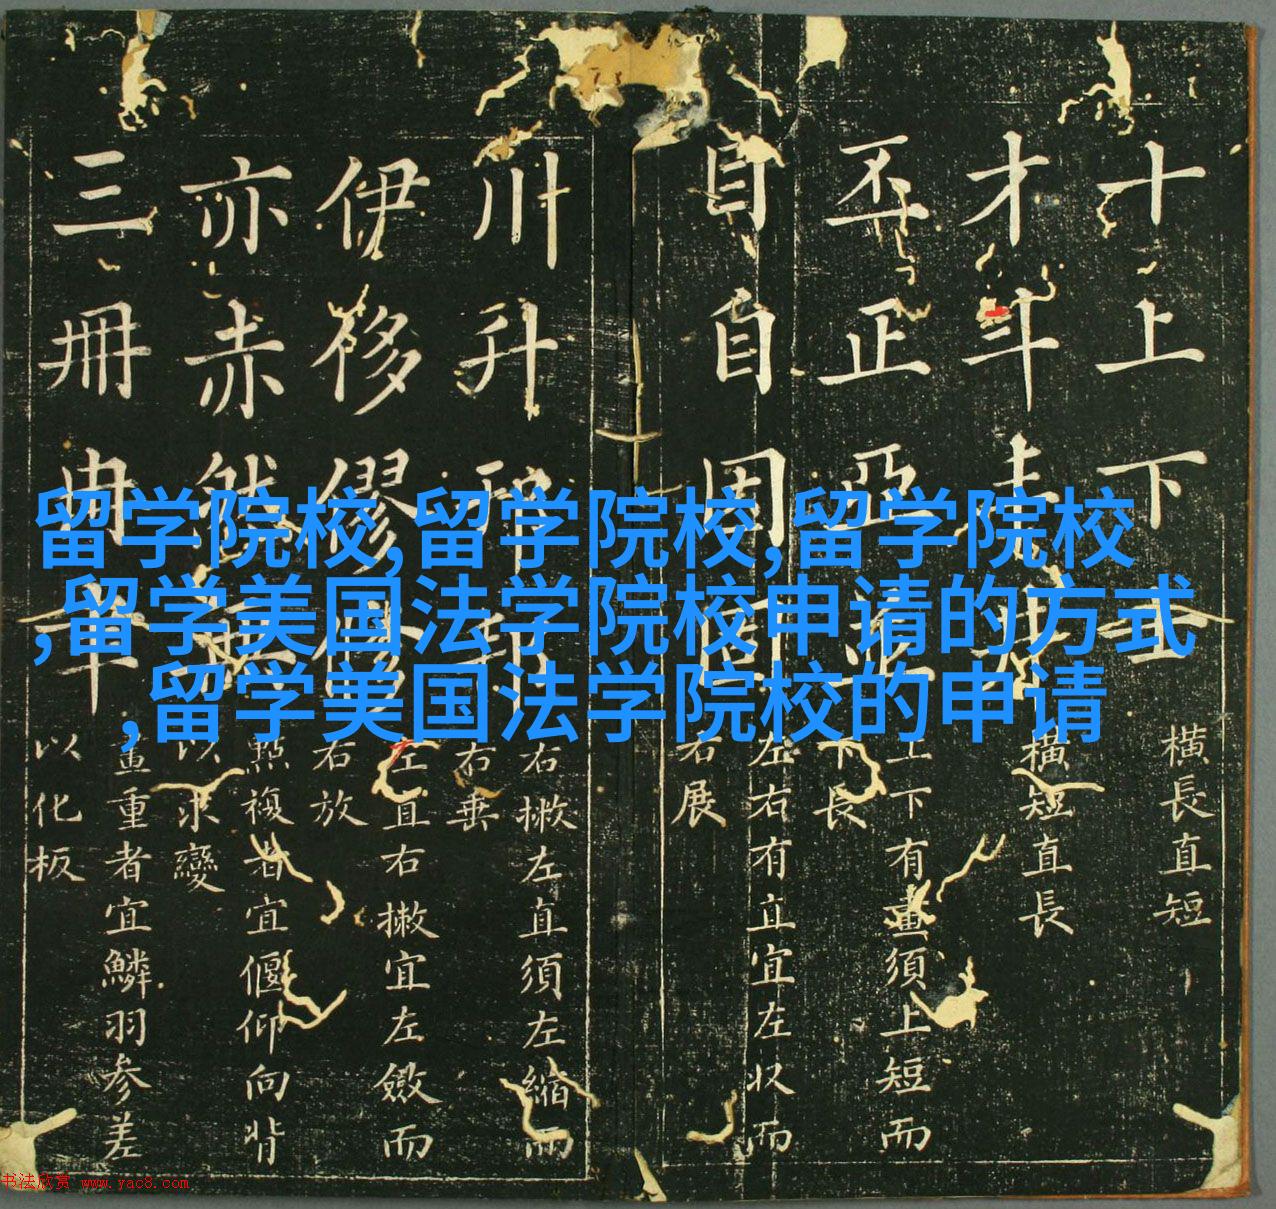 留学院校,留学院校,留学院校
,留学美国法学院校申请的方式
,留学美国法学院校的申请
十上下
橫長直短
才斗
橫短直長
丕正亞
上下有畫須上短而
下長
目自
左右有直宜左収而
右展
川升
右撇左直須左縮而
右垂
伊侈
左直右撇宜左斂而
右放
亦赤然
點複者宜偃仰向背
以求變
三冊冉
畫重者宜鱗羽参差
以化板
书法欣赏 www.yac8.com